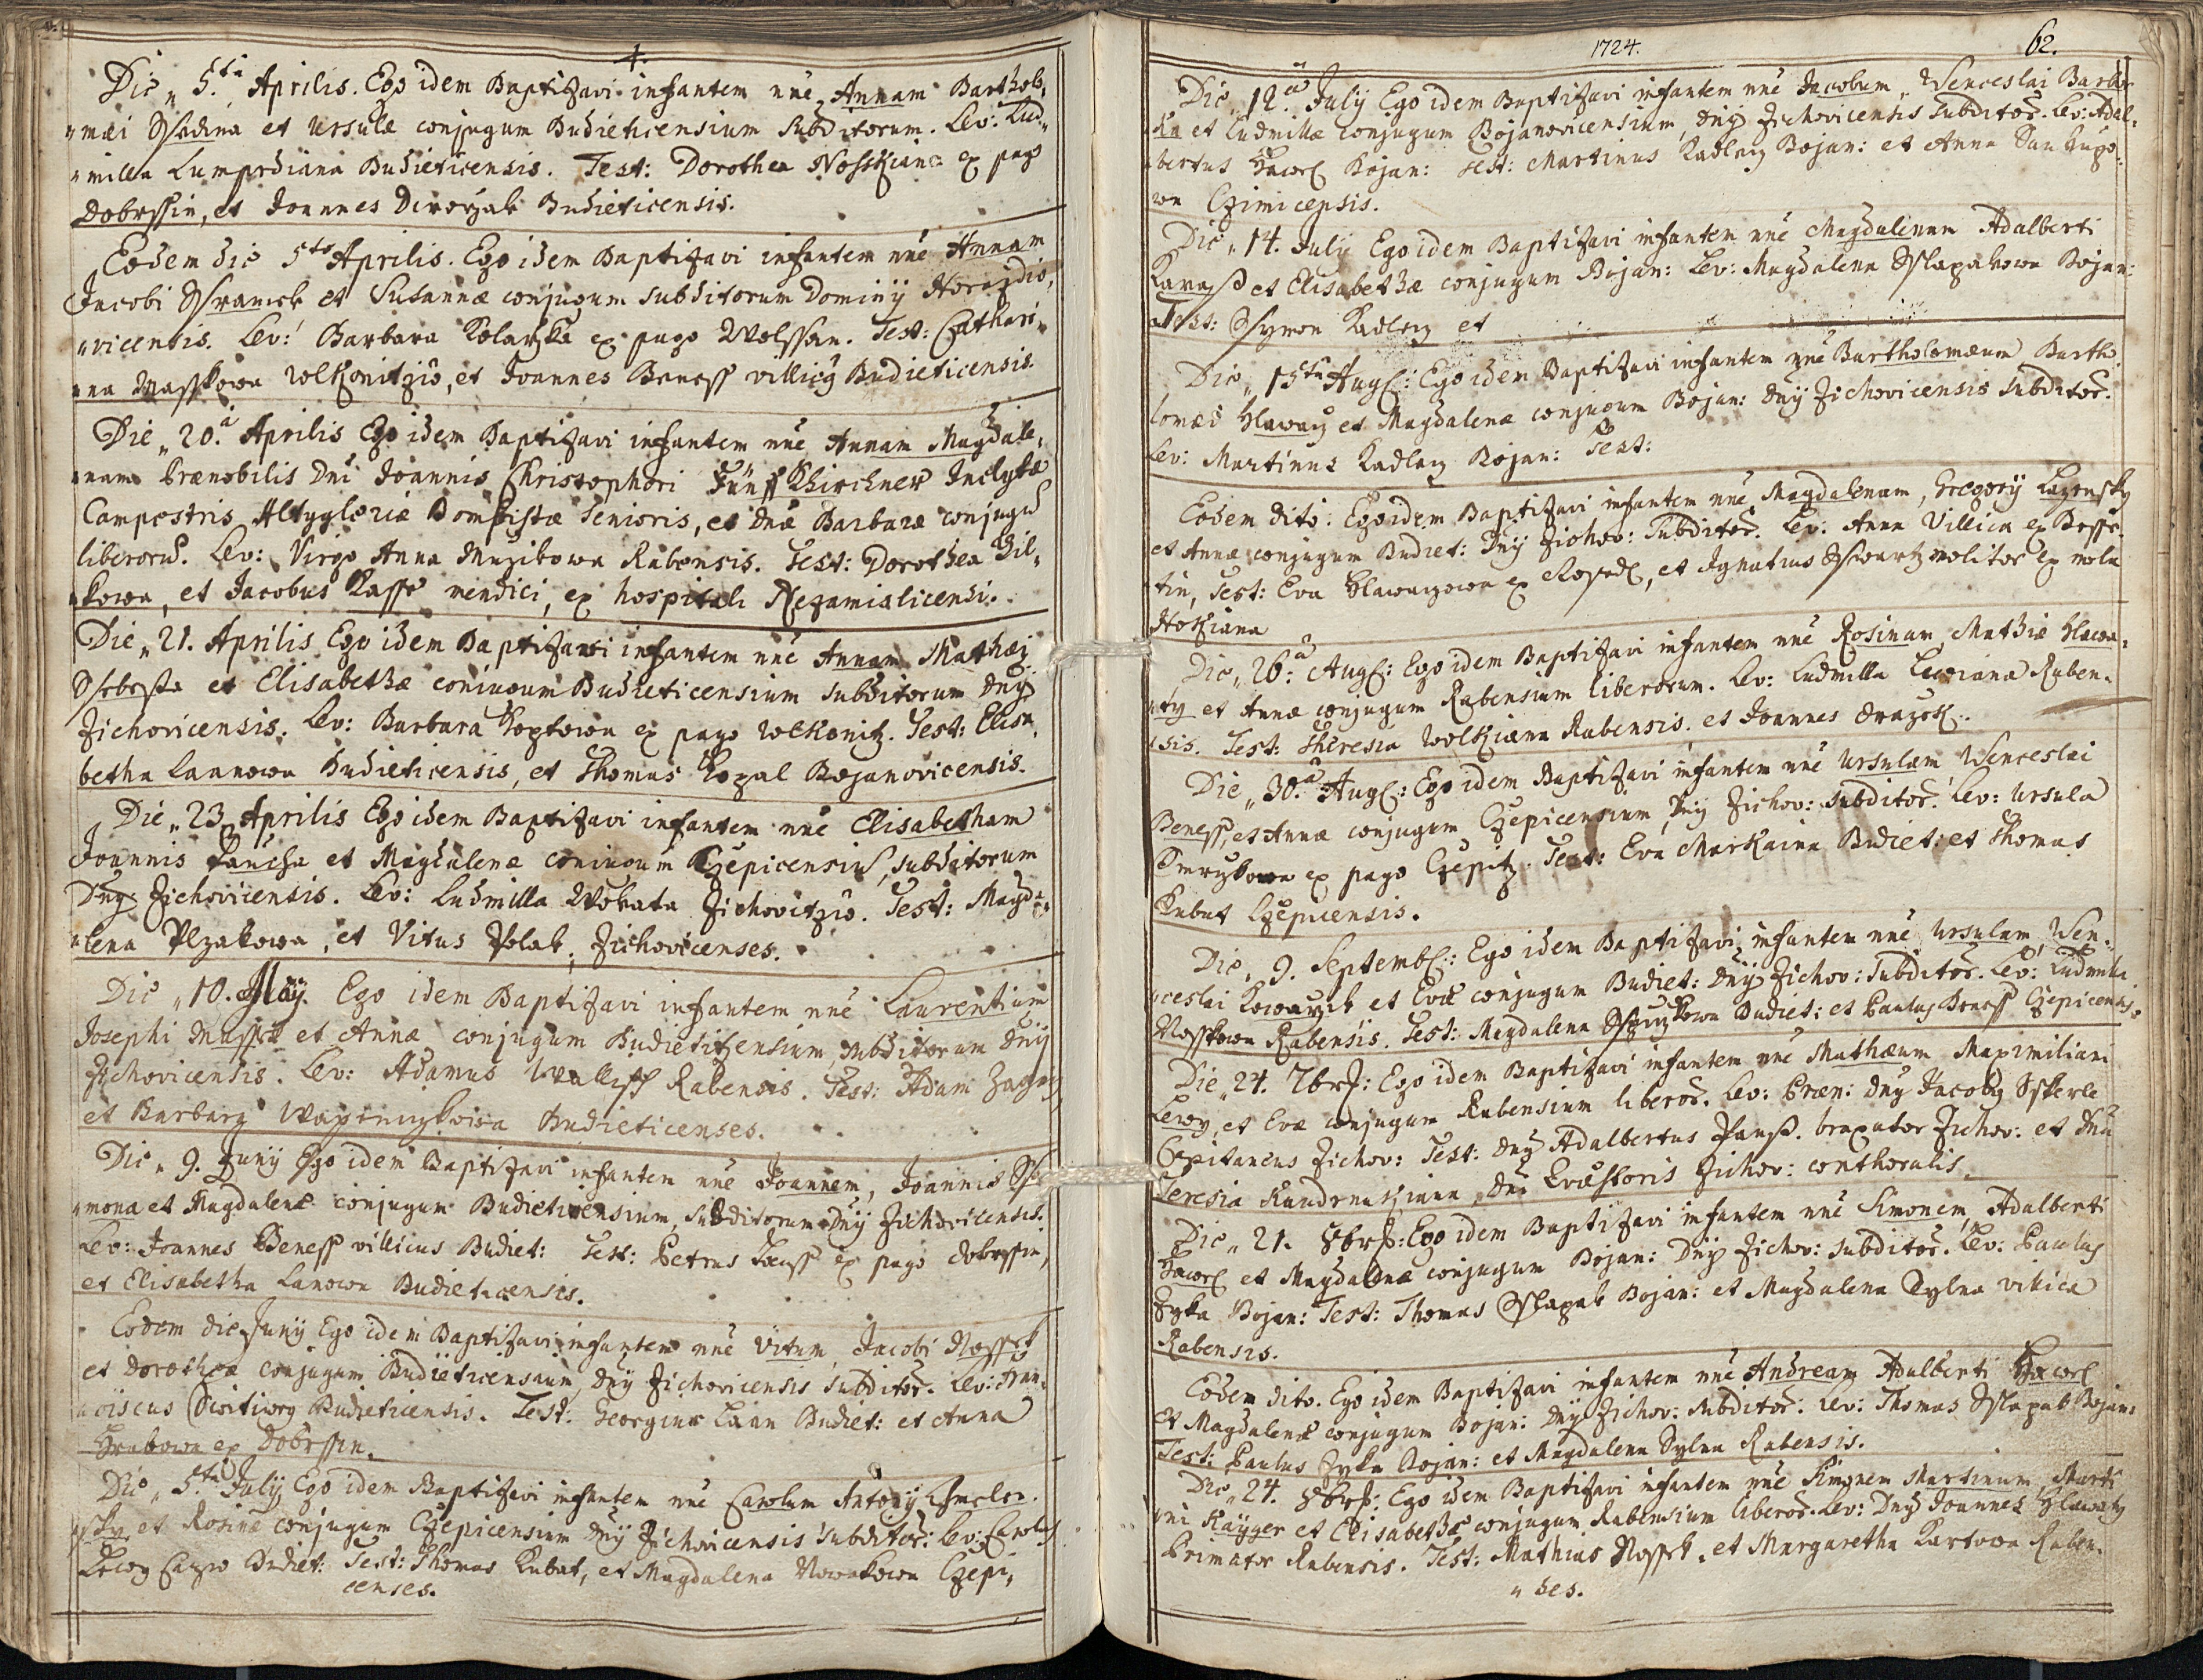 4.
Die „ 5.ta Aprilis. Ego idem Baptizavi infantem nnē Annam Barthol„
„mæi Ssadina et Ursulæ conjugum Budieticensium subditorum. Lev: Lud„
„milla Budieticensis. Test: Dorothea ex pago
Dobrssin, et Joannes Dworzak Budieticensis.
Eodem die 5ta Aprilis. Ego idem Baptizavi infantem nnē Annam
Jacobi Sframek et Susannæ conjugum subditorum Dominÿ Horazdio„
„vicensis. Lev: Barbara Kolarzka ex pago Wolssan. Test: Cathari„
„na Masskowa Wolkonitzio, et Joannes Beness villicus Budieticensis.
Die „ 20.a Aprilis Ego idem Baptizavi infantem nnē Annam Magdale„
„nam Prænobilis Dni Joannis Christophori Fünffkhirchner Inclytæ
Campestris Altyglæriæ Bombistæ Senioris, et Dnæ Barbaræ conjugū
liberorū. Lev: Virgo Anna Muzikowa Rabensis. Test: Dorothea Zil„
„kowa, et Jacobus Kasse mendici, ex hospitali Nezamislicensi.
Die „ 21. Aprilis Ego idem Baptizavi infantem nnē Annam Mathæi
Ssebesta et Elisabethæ coniugum Budieticensium subditorum Dnÿ
Zichovicensis. Lev: Barbara Koptowa ex pago Wolkonitz. Test: Elisa„
betha Lannowa Budieticensis, et Thomas Kozal Bojanovicensis.
Die „ 23. Aprilis Ego idem Baptizavi infantem nnē Elisabetham
Joannis Pancha et Magdalenæ coniugum Czepicensiū, subditorum
Dnÿ Zichovicensis. Lev: Ludmilla Wokata Zichovitzio. Test: Magda„
„lena Plzakowa, et Vitus Polak, Zichovicenses.
Die „ 10. Maÿ. Ego idem Baptizavi infantem nnē Laurentium
Josephi Massek et Annæ conjugum Budietitzensium subditorum Dnÿ
Zichovicensis. Lev: Adamus Walliss Rabensis. Test: Adam
et Barbara Budieticenses.
Die „ 9. Junÿ Ego idem Baptizavi infantem nnē Joannem, Joannis
„mona et Magdalenæ conjugum Budieticensium, subditorum Dnÿ Zichovicensis.
Lev: Joannes Beness villicus Budiet: Test: Petrus ex pago Dobrssin,
et Elisabetha Lanowa Budieticensis.
Eodem die Junÿ Ego idem Baptizavi infantem nnē Vitum Jacobi Nossek
et Dorotheæ conjugum Budieticensium, Dnÿ Zichovicensis subditor. Lev: Fran„
„ciscus Budieticensis. Test: Georgius Laan Budiet: et Anna
Hrabowa ex Dobrssin.
Die „ 5.ta Julÿ Ego idem Baptizavi infantem nnē Carolum Antonÿ
et Rosinæ conjugum Czepicensium Dnÿ Zichovicensis subditor: Lev: Carolus
Budiet: Test: Thomas Kubat, et Magdalena Nowakowa Czepi„
censes.
1724. 62.
Die „ 12.a Julÿ Ego idem Baptizavi infantem nnē Jacobum, Wenceslai Barbor
„ka et Ludmillæ conjugum Bojanovicensium, Dnÿ Zichovicensis subditor. Lev: Adal„
„bertus Hawel Bojan: Test: Martinus Kadlez Bojan: et Anna
wa Czimicensis.
Die „ 14. Julÿ Ego idem Baptizavi infantem nnē Magdalenam Adalberti
Karass et Elisabethæ conjugum Bojan: Lev: Magdalena Sslapakowa Bojan:
Test: Ssymon Kadlez et
Die „ 15ta Augs: Ego idem Baptizavi infantem nnē Bartholomæum Bartho
lomæi Hlawaz et Magdalenæ conjugum Bojan: Dnÿ Zichovicensis subditor.
Lev: Martinus Kadlez Bojan: Test:
Eodem dito: Ego idem Baptizavi infantem nnē Magdalenam, Gregorÿ Lazensky
et Annæ conjugum Budiet: Dnÿ Zichov: subditor. Lev: Anna Villica ex
tin, Test: Eva Hlawaczowa ex et Ignatius Sswartz molitor ex mola
Die „ 26.a Augs: Ego idem Baptizavi infantem nnē Rosinam Mathiæ Hlawa„
„ty et Annæ conjugum Rabensium liberorum. Lev: Ludmilla Lewiana Raben„
„sis. Test: Theresia Wolkiana Rabensis. et Joannes
Die „ 30.a Augs: Ego idem Baptizavi infantem nnē Ursulam Wenceslai
Beness, et Annæ conjugum Czepicensium, Dnÿ Zichov: subditor. Lev: Ursula
Smrzkowa ex pago Czepitz. Test: Eva Markaina Budiet: et Thomas
Kubat Czepicensis.
Die „ 9. Septembs: Ego idem Baptizavi infantem nnē Ursulam Wen„
„ceslai Kowarzik et Evæ conjugum Budiet: Dnÿ Zichov: subditor. Lev: Ludmila
Nosskowa Rabensis. Test: Magdalena Budiet: et Paulus Beness Czepicensis.
Die „ 24. 7brs: Ego idem Baptizavi infantem nnē Mathæum Maximiliani
Lewy, et Evæ conjugum Rabensium liberor. Lev: Præn: Dnÿ Jacobus Sskerle
Capitaneus Zichov: Test: Dnÿ Adalbertus Panss. braxator Zichov: et Dna
Teresia Kundratiana, Dni Quæstoris Zichov: conthoralis.
Die „ 21. 8brs: Ego idem Baptizavi infantem nnē Simonem Adalberti
Hawel et Magdalenæ conjugum Bojan: Dnÿ Zichov: subditor. Lev: Paulus
Zyka Bojan: Test: Thomas Sslapak Bojan: et Magdalena Sylna villica
Rabensis.
Eodem dito. Ego idem Baptizavi infantem nnē Andream Adalberti Hawel
et Magdalenæ conjugum Bojan: Dnÿ Zichov: subditor. Lev: Thomas Sslapak Bojan:
Test: Paulus Zyka Bojan: et Magdalena Sylna Rabensis.
Die „ 24. 8brs: Ego idem Baptizavi infantem nnē Simonem Martinum, Marti
„ni Kaÿger et Elisabethæ conjugum Rabensium liberor. Lev: Dnÿ Joannes Hlawaty
Primator Rabensis. Test: Mathias Nossek, et Margaretha Kartowa Raben„
„ses.